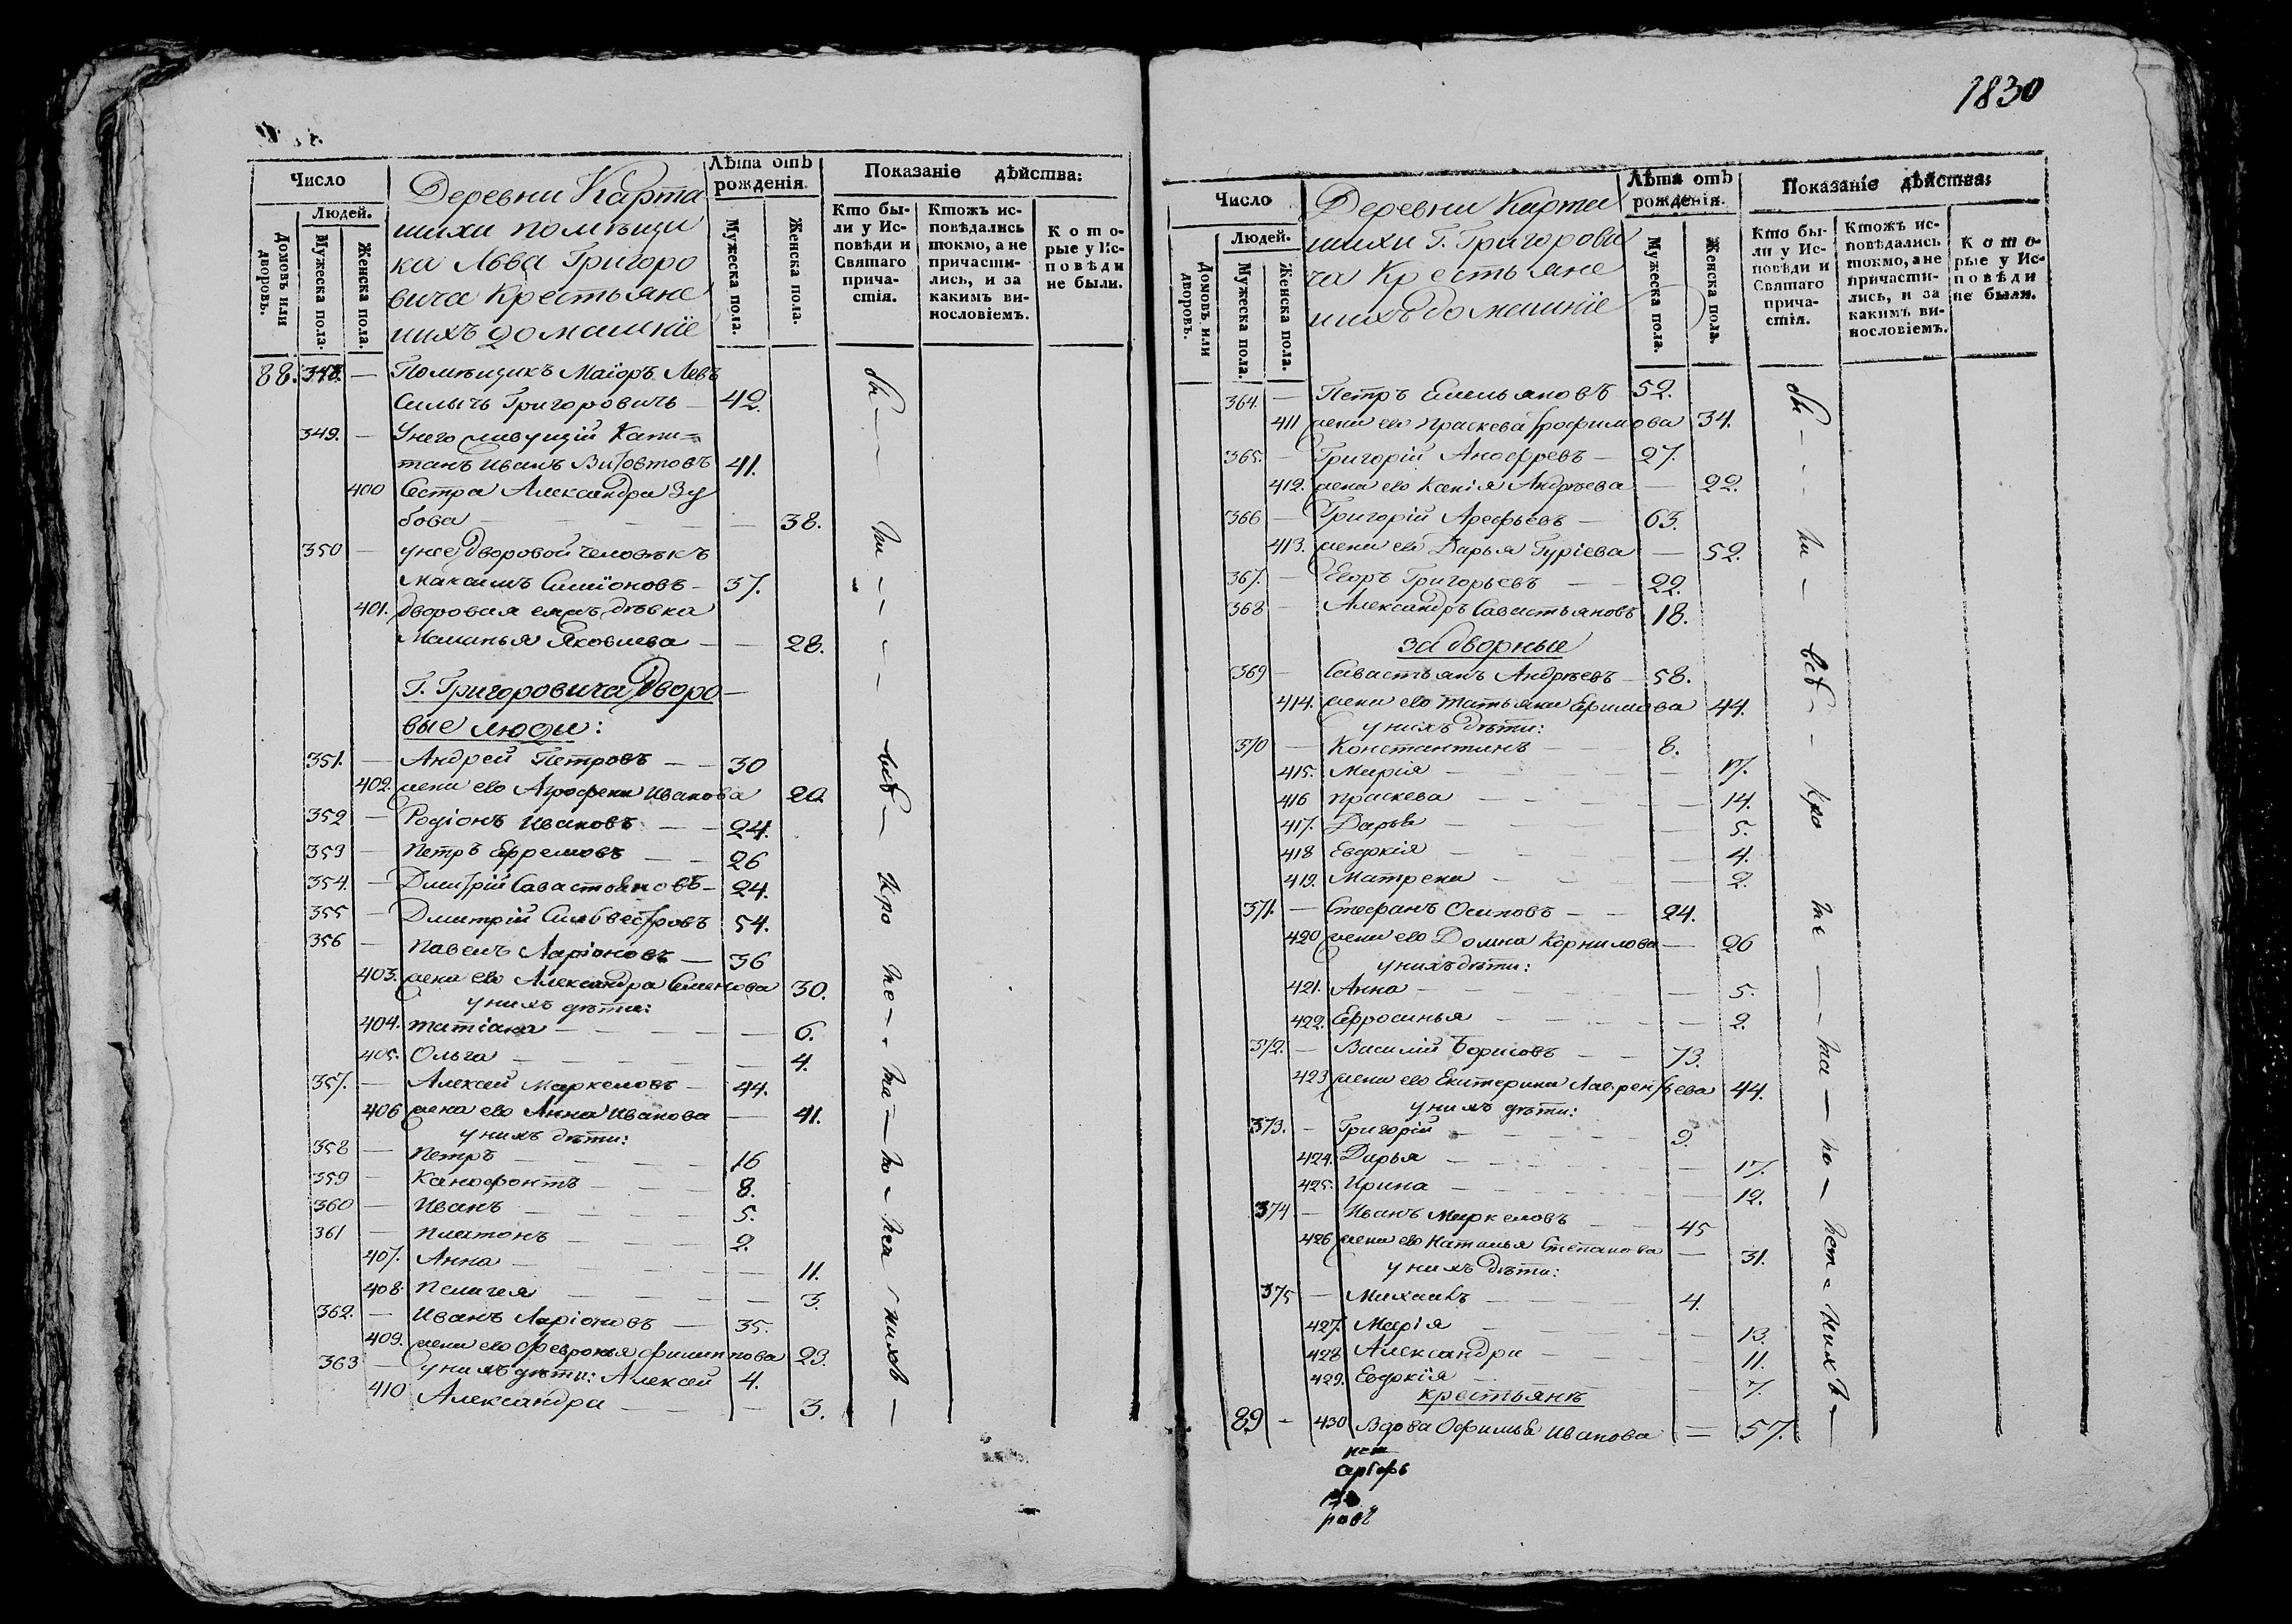 1830
Число
Людей.
Домовъ или дворовъ.
Мужеска пола.
Женска пола.
Деревни Карта
шихи помѣщи
ка Льва Григоро
вича Крестьяне
ихъ домашніе
Лѣта отъ рожденія.
Мужеска пола.
Женска пола.
Показаніе дѣйства:
Кто бы-
ли у Ис-
повѣди и
Святаго
прича-
стія.
Ктожъ ис-
повѣдались
токмо, а не
причасти-
лись, и за
какимъ ви-
нословіемъ.
Кото-
рые у Ис-
повѣди
не были.
88. 348. — Помѣщикъ Маіоръ Левъ
Силычь Григоровичь — 42.
349. — Унего живущій Капи=
танъ Иванъ 41.
400 Сестра Александра Зу
бова — 38.
350 — унее дворовой человѣкъ
Максимъ Симіоновъ — 37.
401. дворовая дѣвка
Маланья Яковлева — — 28.
Г. Григоровича дворо—
вые люди:
351. — Андрей Петровъ — — 30
402. жена его Агрофена Иванова 20
352 — Родіонъ Ивановъ — — 24.
353 — Петръ Ефремовъ — — 26
354. — Дмитрій Савастьяновъ — 24.
355 — Дмитрій Сильвестровъ 54.
356 — Павелъ Ларіоновъ — 36
403. жена его Александра Семенова 30.
унихъ дѣти:
404. Татіана — 6.
405. Ольга — 4.
357. — Алексей Маркеловъ — 44.
406 жена его Анна Иванова — 41.
унихъ дѣти:
358 — Петръ — 16
359 — Канофонтъ — 8.
360 — Иванъ — 5.
361 — Платонъ — 2.
407. Анна — 11.
408. Пелагея — 3.
362. — Иванъ Ларіоновъ — 35.
409. жена его Февронья Филиппова 23.
363 — унихъ дѣти: Алексей 4.
410 Александра — 3.
всѣ — кро — ме
Число
Людей.
Домовъ или дворовъ.
Мужеска пола.
Женска пола.
Деревни Карта
шихи Г. Григорови
ча Крестьяне
ихъ домашніе
Лѣта отъ рожденія.
Мужеска пола.
Женска пола.
Показаніе дѣйства:
Кто бы-
ли у Ис-
повѣди и
Святаго
прича-
стія.
Ктожъ ис-
повѣдались
токмо, а не
причасти-
лись, и за
какимъ ви-
нословіемъ.
Кото-
рые у Ис-
повѣди
не были.
364. — Петръ Емельяновъ 52.
411 жена его Праскева Трофимова 34.
365. — Григорій Аноферевъ — 27.
412. жена его Ксенія Андрѣева — 22.
366 — Григорій Арефьевъ — 63.
413. жена его Дарья Гуріева — 52.
367. — Егоръ Григорьевъ — — 22.
368 — Александръ Савастьяновъ 18.
задворные
369 — Савастьянъ Андрѣевъ — 58.
414. жена его Татьяна Ефимова 44.
унихъ дѣти:
370 — Константинъ — 8.
415. Марія — 17.
416 Праскева — 14.
417. Дарья — 5.
418 Евдокія — 4.
419. Матрена — 2.
371. — Стефанъ Осиповъ — — 24.
420 жена его Домна Корнилова — 26
унихъ дѣти:
421. Анна — 5.
422. Ефросинья — 2.
372. — Василій Борисовъ — — 73.
423 жена его Екатерина Лаврентьева 44.
унихъ дѣти:
373. — Григорій — 9.
424. Дарья — 17.
425. Ирина — 12.
374 — Иванъ Маркеловъ — — 45
426 жена его Наталья Степанова — 31.
унихъ дѣти:
375 — Михаилъ — 4.
427. Марія — 13.
428 Александра — 11.
429. Евдокія — 7.
крестьянѣ
89 — 430 Вдова Офимья Иванова = 57.
всѣ — кро — ме